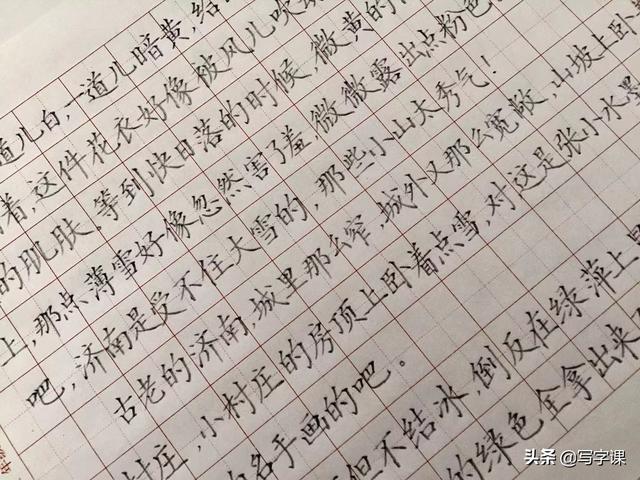 道儿白,一道儿暗黄,给
着,这件花衣好像被风儿吹动
的肌肤。等到快日落的时候,微黄的
上,那点薄雪好像忽然害了羞,微微露出点粉色
吧,济南是受不住大雪的,那些小山太秀气!
古老的济南,城里那么窄,城外又那么宽敞,山坡上卧
村庄,小村庄的房顶上卧着点雪,对这是张小水墨
名手画的吧。
但不结冰,倒反在绿萍上
的绿色全拿出来
头条 @写字课